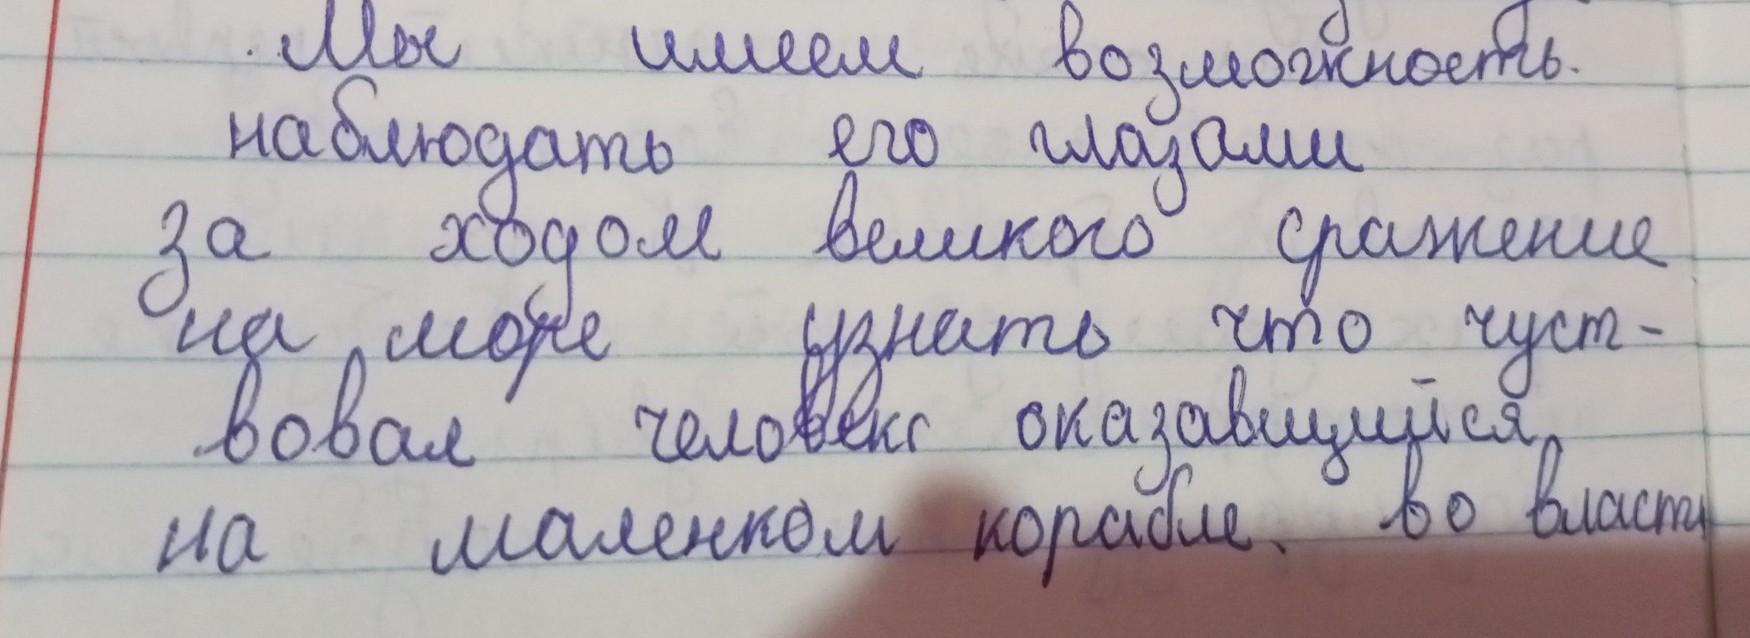 Мы имеем возможность.
наблюдать его глазами
за ходом великого сражение
на море узнать что чуст-
вовал человек оказавщийся
на маленком корабле. во власти